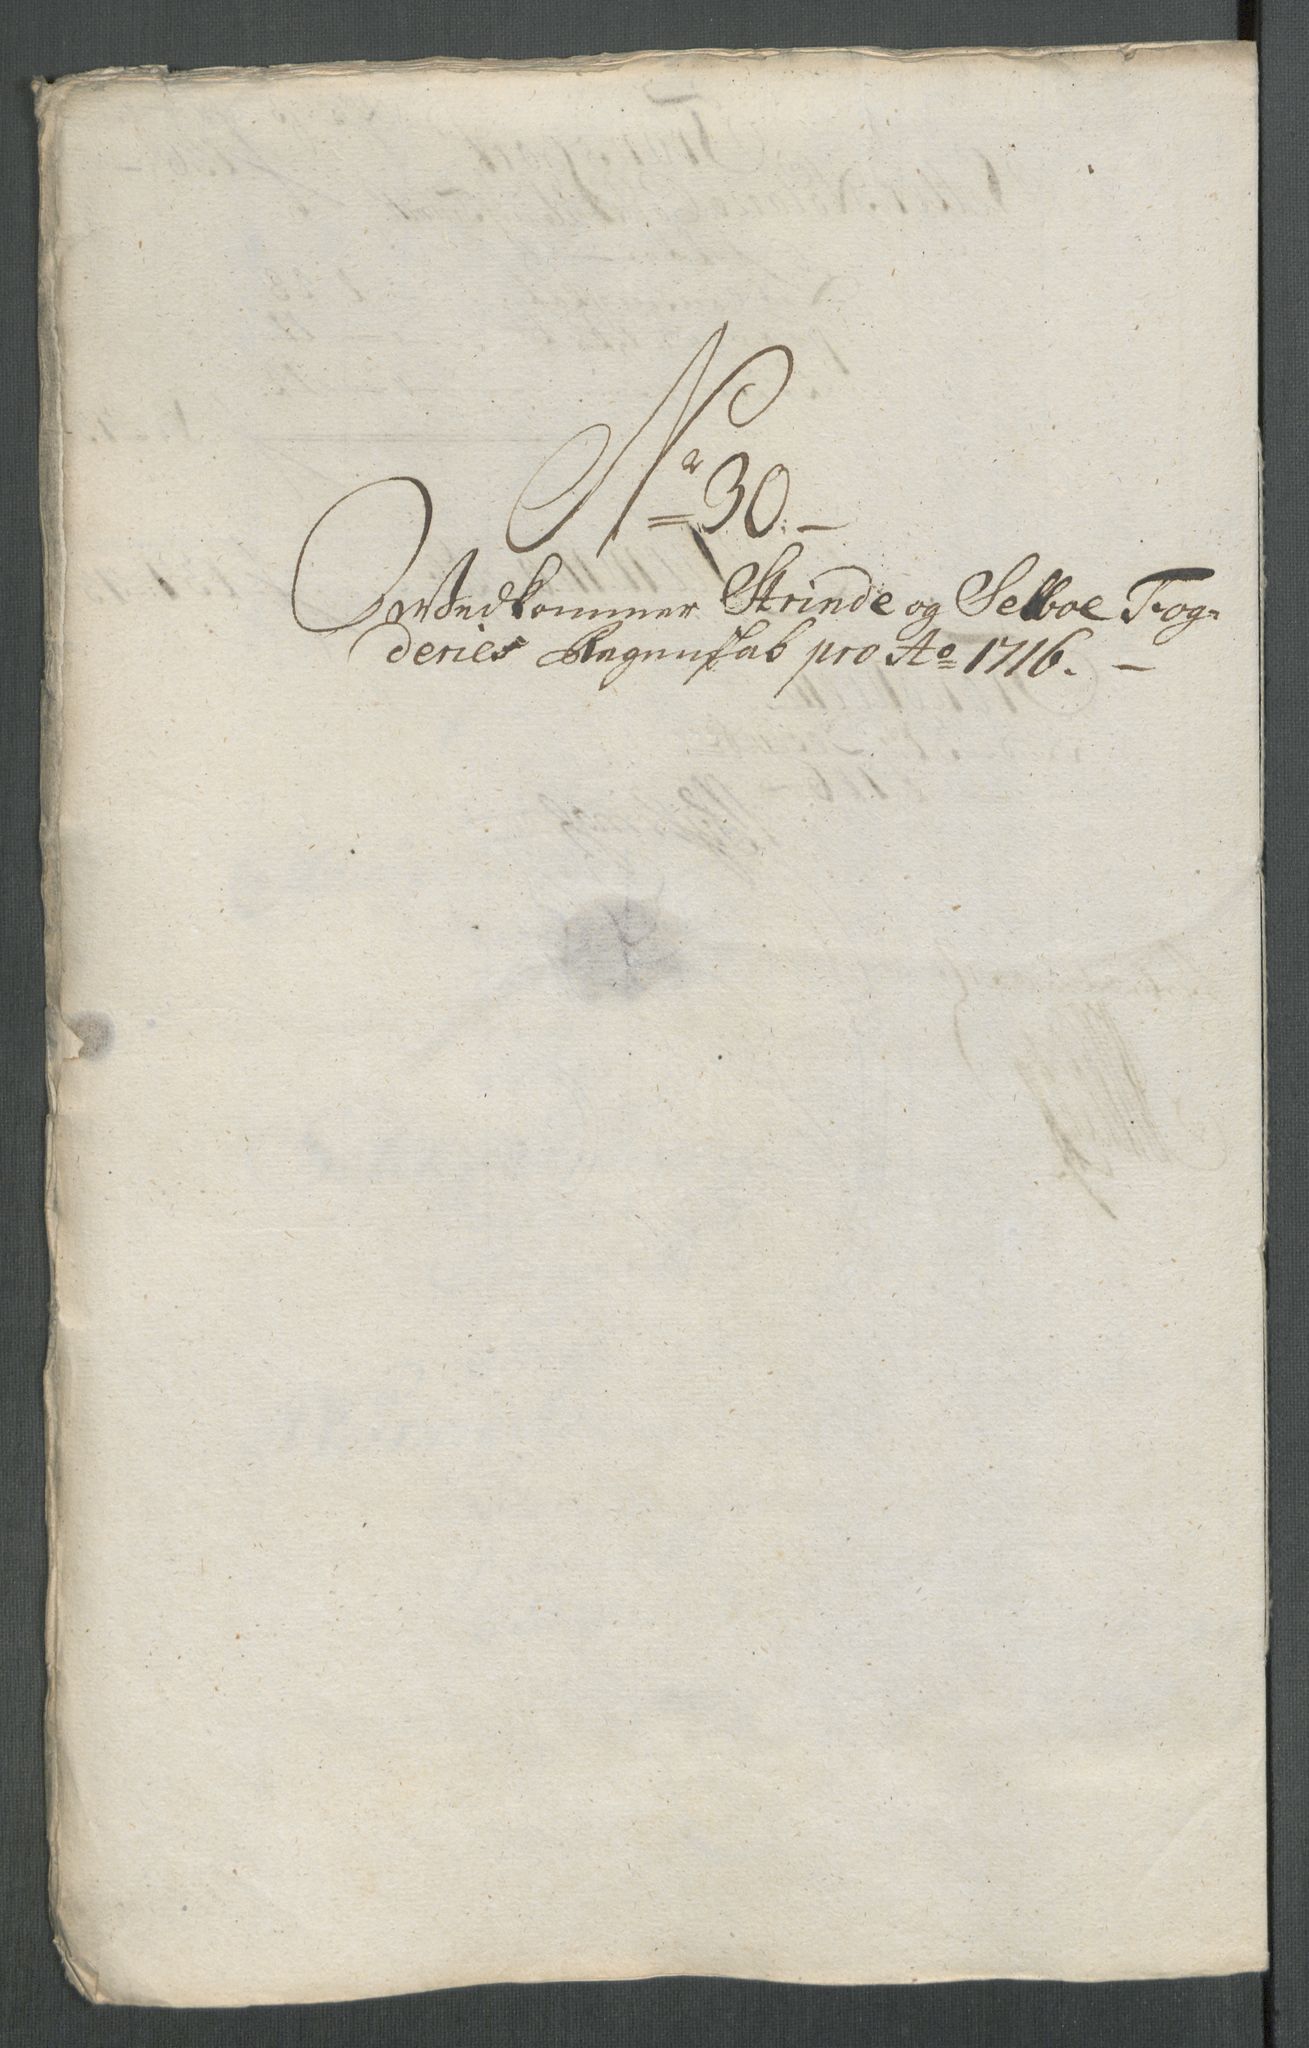 Nr 30. –
Vedkommer Strinde og Selboe Fog=
deries Regnskab pro Ao 1716. –